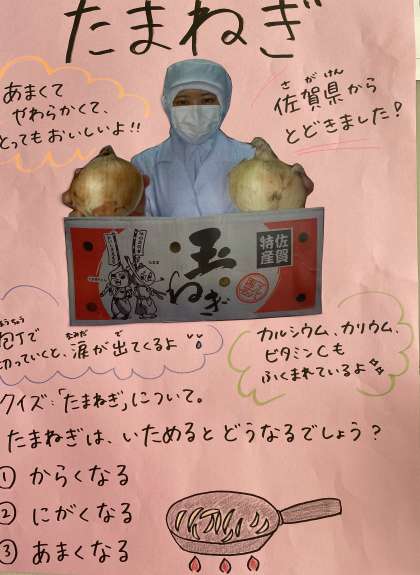 たまねぎ
あまくて
やわらかくて、
とってもおいしいよ!!
さがけん
佐賀県から
とどきました!
佐賀
特産
玉
ねぎ
ほうちょう
包丁で
なみだ で
切っていくと、涙が出てくるよ
カルシウム、カリウム、
ビタミンCも
ふくまれているよ
クイズ:「たまねぎ」について。
たまねぎは、いためるとどうなるでしょう?
① からくなる
② にがくなる
③ あまくなる